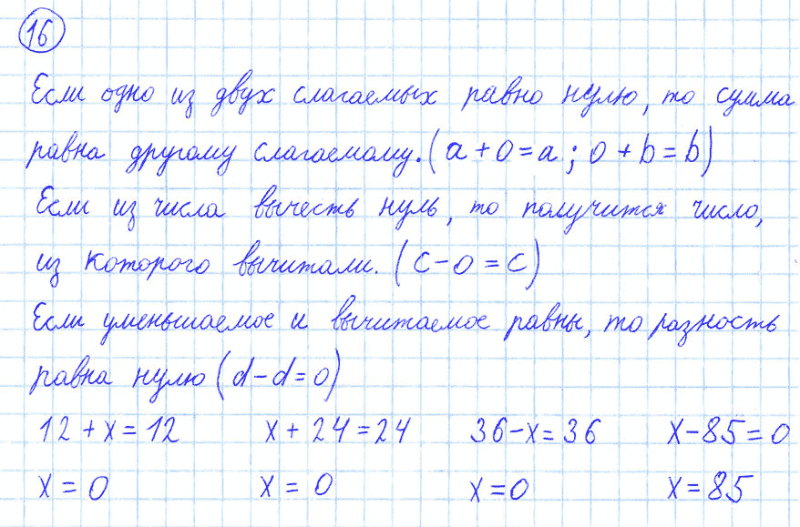 16
Если одно из двух слагаемых равно нулю, то сумма
равна другому слагаемому. (a + 0 = a ; 0 + b = b)
Если из числа вычесть нуль, то получится число,
из которого вычитали. (c - 0 = c)
Если уменьшаемое и вычитаемое равны, то разность
равна нулю (d - d = 0)
12 + x = 12 x + 24 = 24 36 - x = 36 x - 85 = 0
x = 0 x = 0 x = 0 x = 85